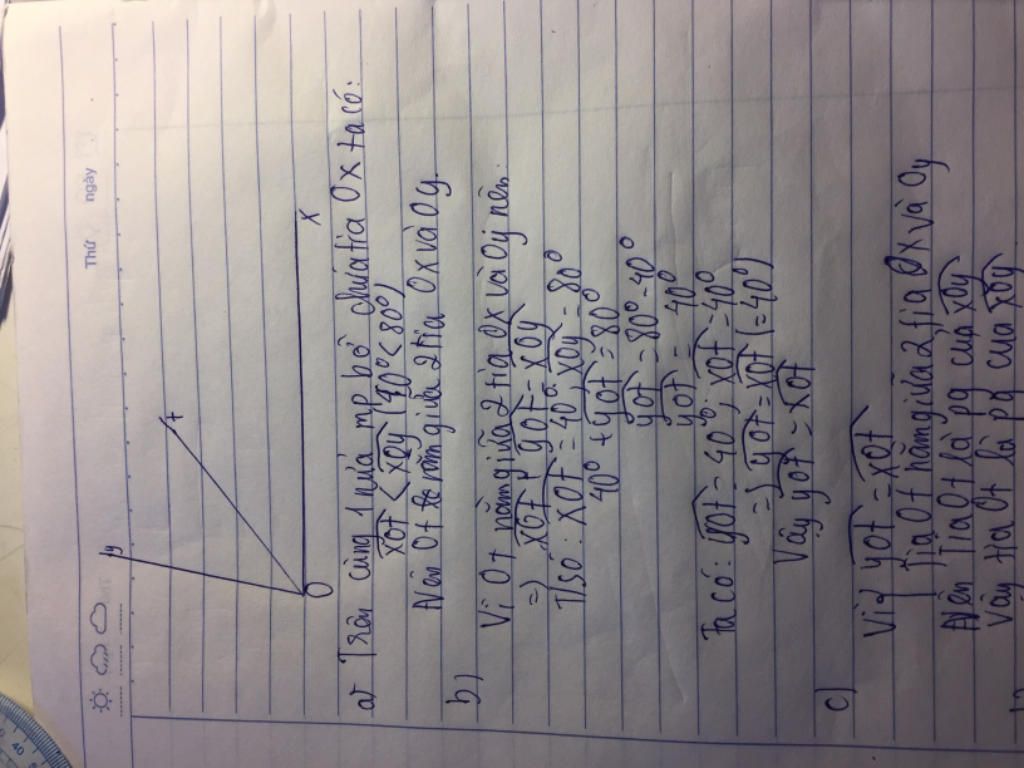 Thứ ngày
y
t
O
x
a) Trên cùng 1 nửa mp bờ chứa tia Ox ta có:
xOt < xOy (40° < 80°)
Nên Ot nằm giữa 2 tia Ox và Oy.
b)
Vì Ot nằm giữa 2 tia Ox và Oy nên
=) xOt + yOt = xOy
T/Số: xOt = 40°. xOy = 80°
40° + yOt = 80°
yOt = 80° - 40°
yOt = 40°
Ta có: yOt = 40°; xOt = 40°
=) yOt = xOt (= 40°)
Vậy yOt = xOt
c)
Vì yOt = xOt
Tia Ot nằm giữa 2 tia Ox và Oy
Nên Tia Ot là pg của xOy
Vậy tia Ot là pg của xOy